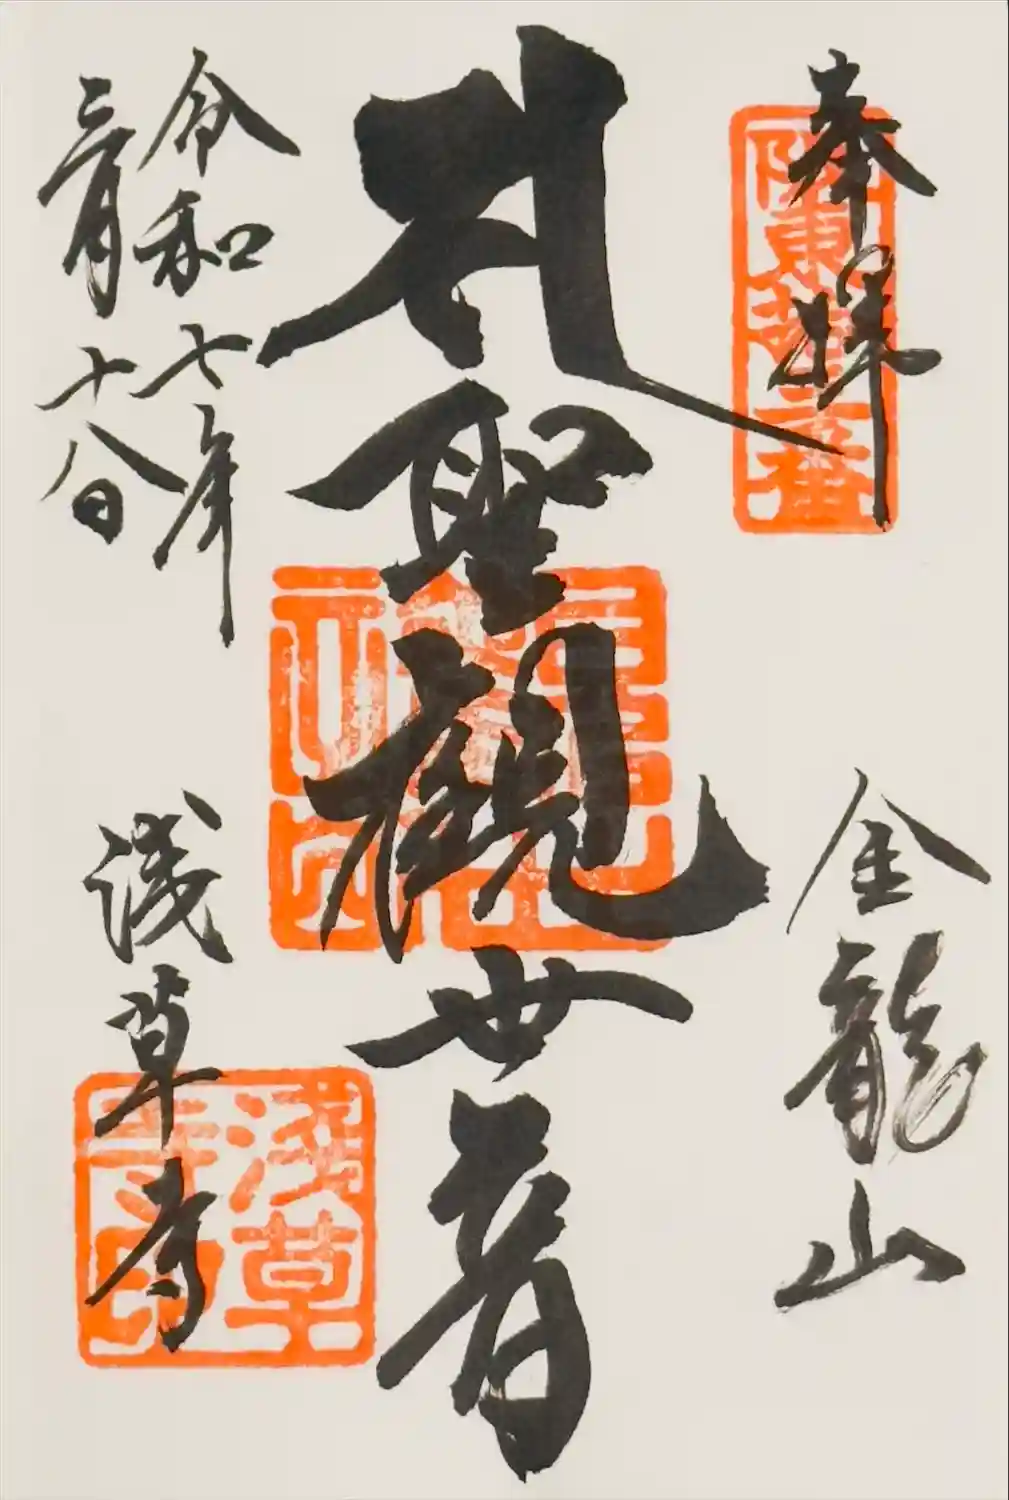 奉拝
坂東拾三番
金龍山
聖観世音
令和七年
三月十八日
浅草寺
浅草
寺印